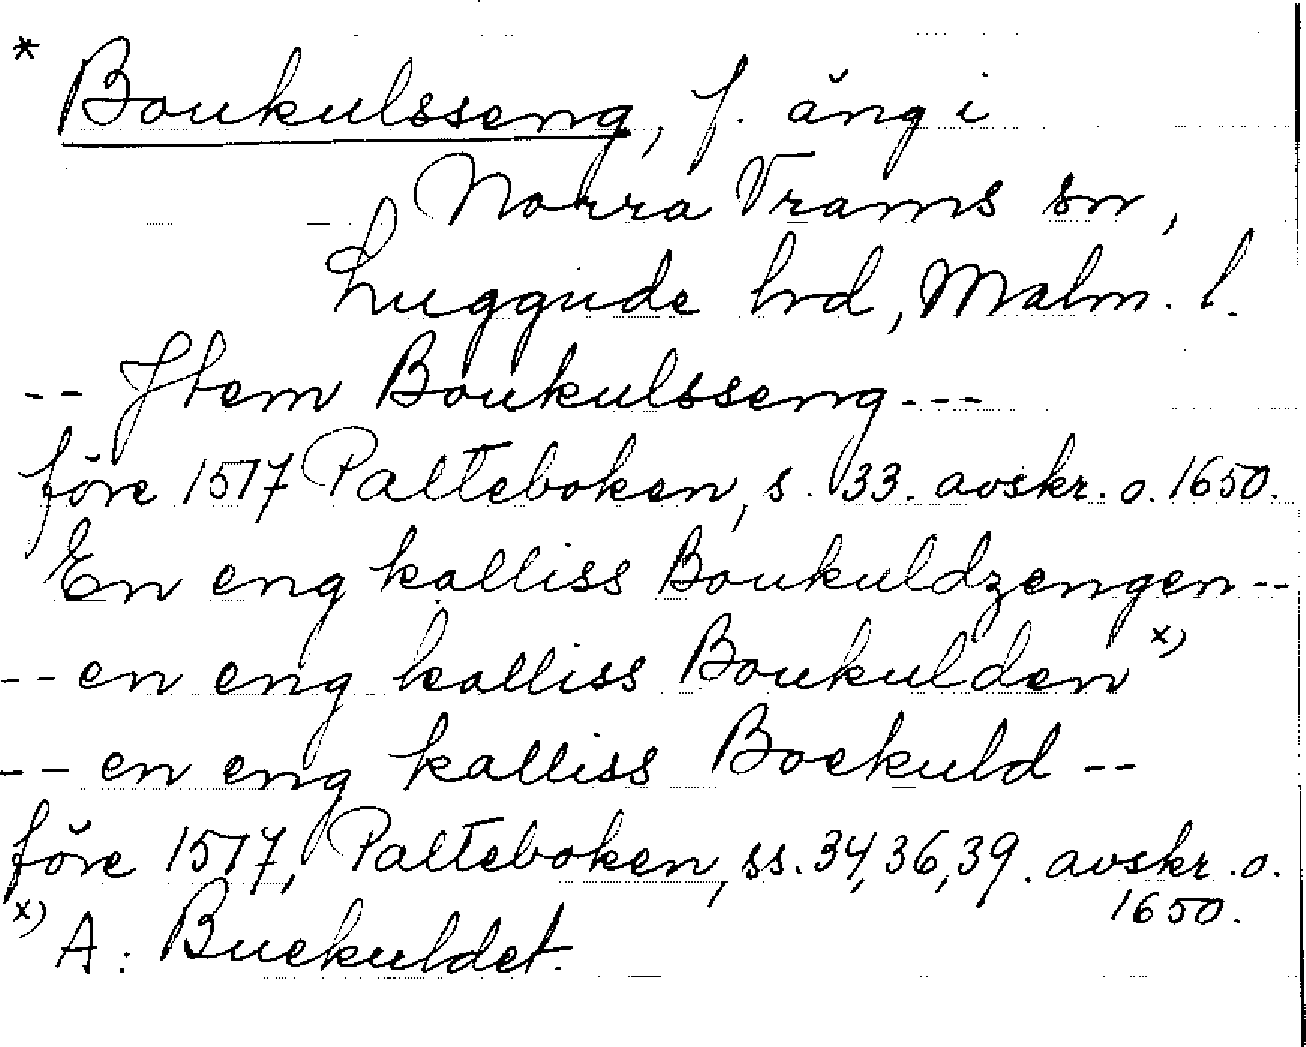 * Boukulsseng, f. äng i
Norra Vrams sn,
Luggude hrd, Malm. l.
-- Jtem Boukulsseng ---
före 1517 Palteboken, s. 33. avskr. o. 1650.
En eng kalliss Boukuldzengen --
-- en eng kalliss Boukulden x)
-- en eng kalliss Boekuld --
före 1517, Palteboken, ss. 34, 36, 39. avskr. o.
1650.
x) A: Buekuldet.